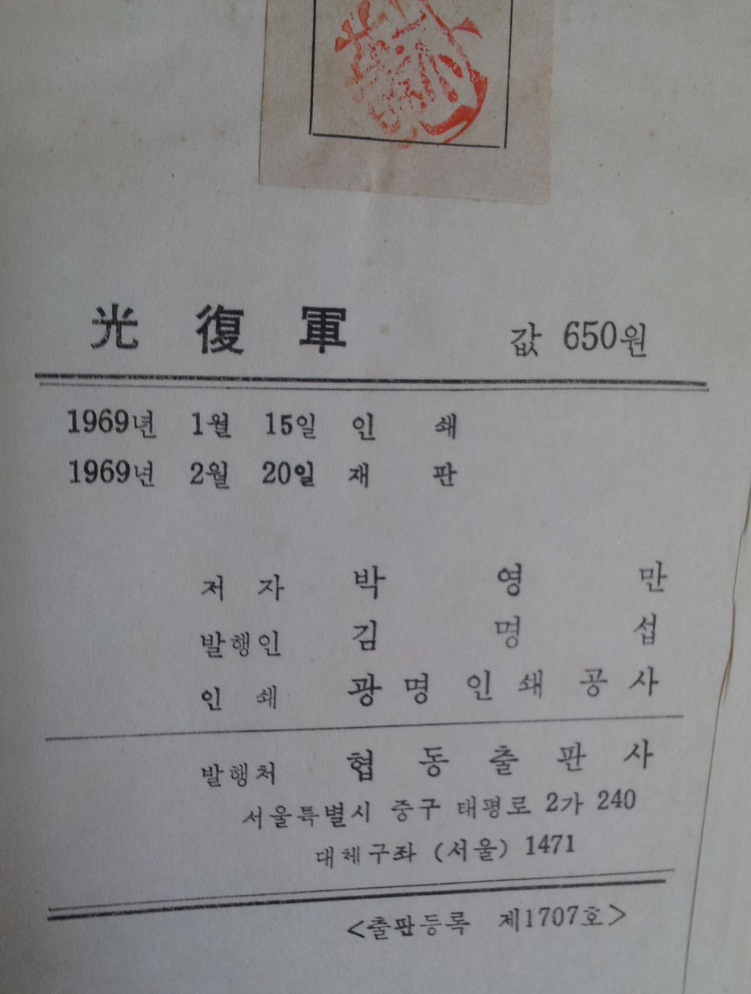 光復軍 값 650원
1969년 1월 15일 인 쇄
1969년 2월 20일 재 판
저 자 박 영 만
발행인 김 명 섭
인 쇄 광 명 인 쇄 공 사
발행처 협 동 출 판 사
서울특별시 중구 태평로 2가 240
대체구좌 (서울) 1471
<출판등록 제1707호>